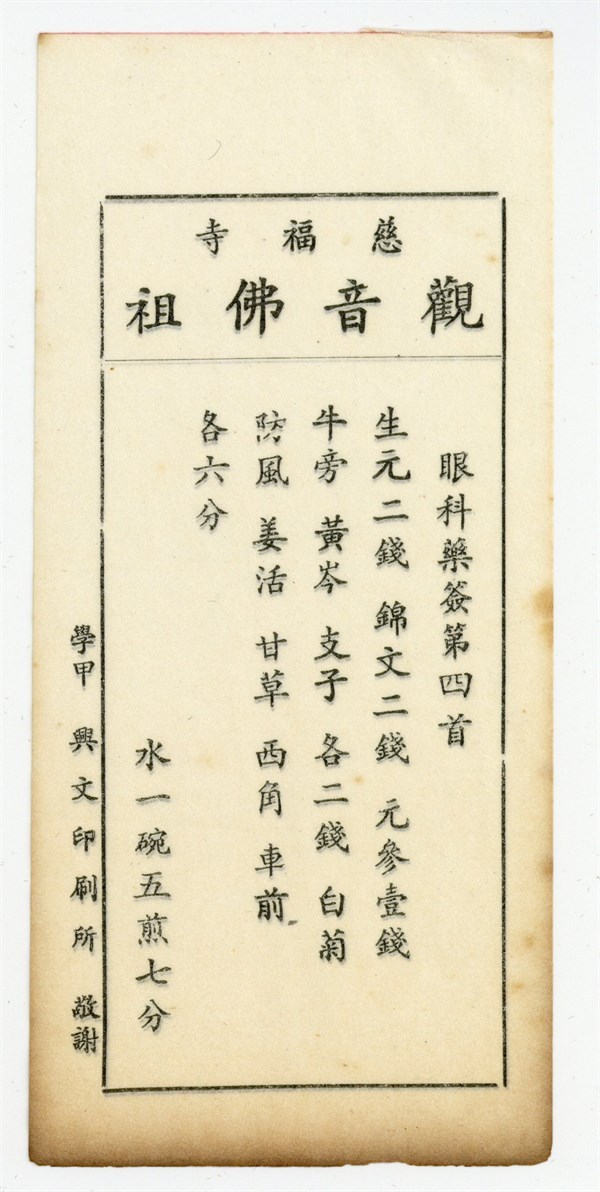 慈福寺
觀音佛祖
眼科藥簽第四首
生元二錢 錦文二錢 元參壹錢
牛旁 黃岑 支子 各二錢 白菊
防風 姜活 甘草 西角 車前
各六分
水一碗五煎七分
學甲 興文印刷所 敬謝